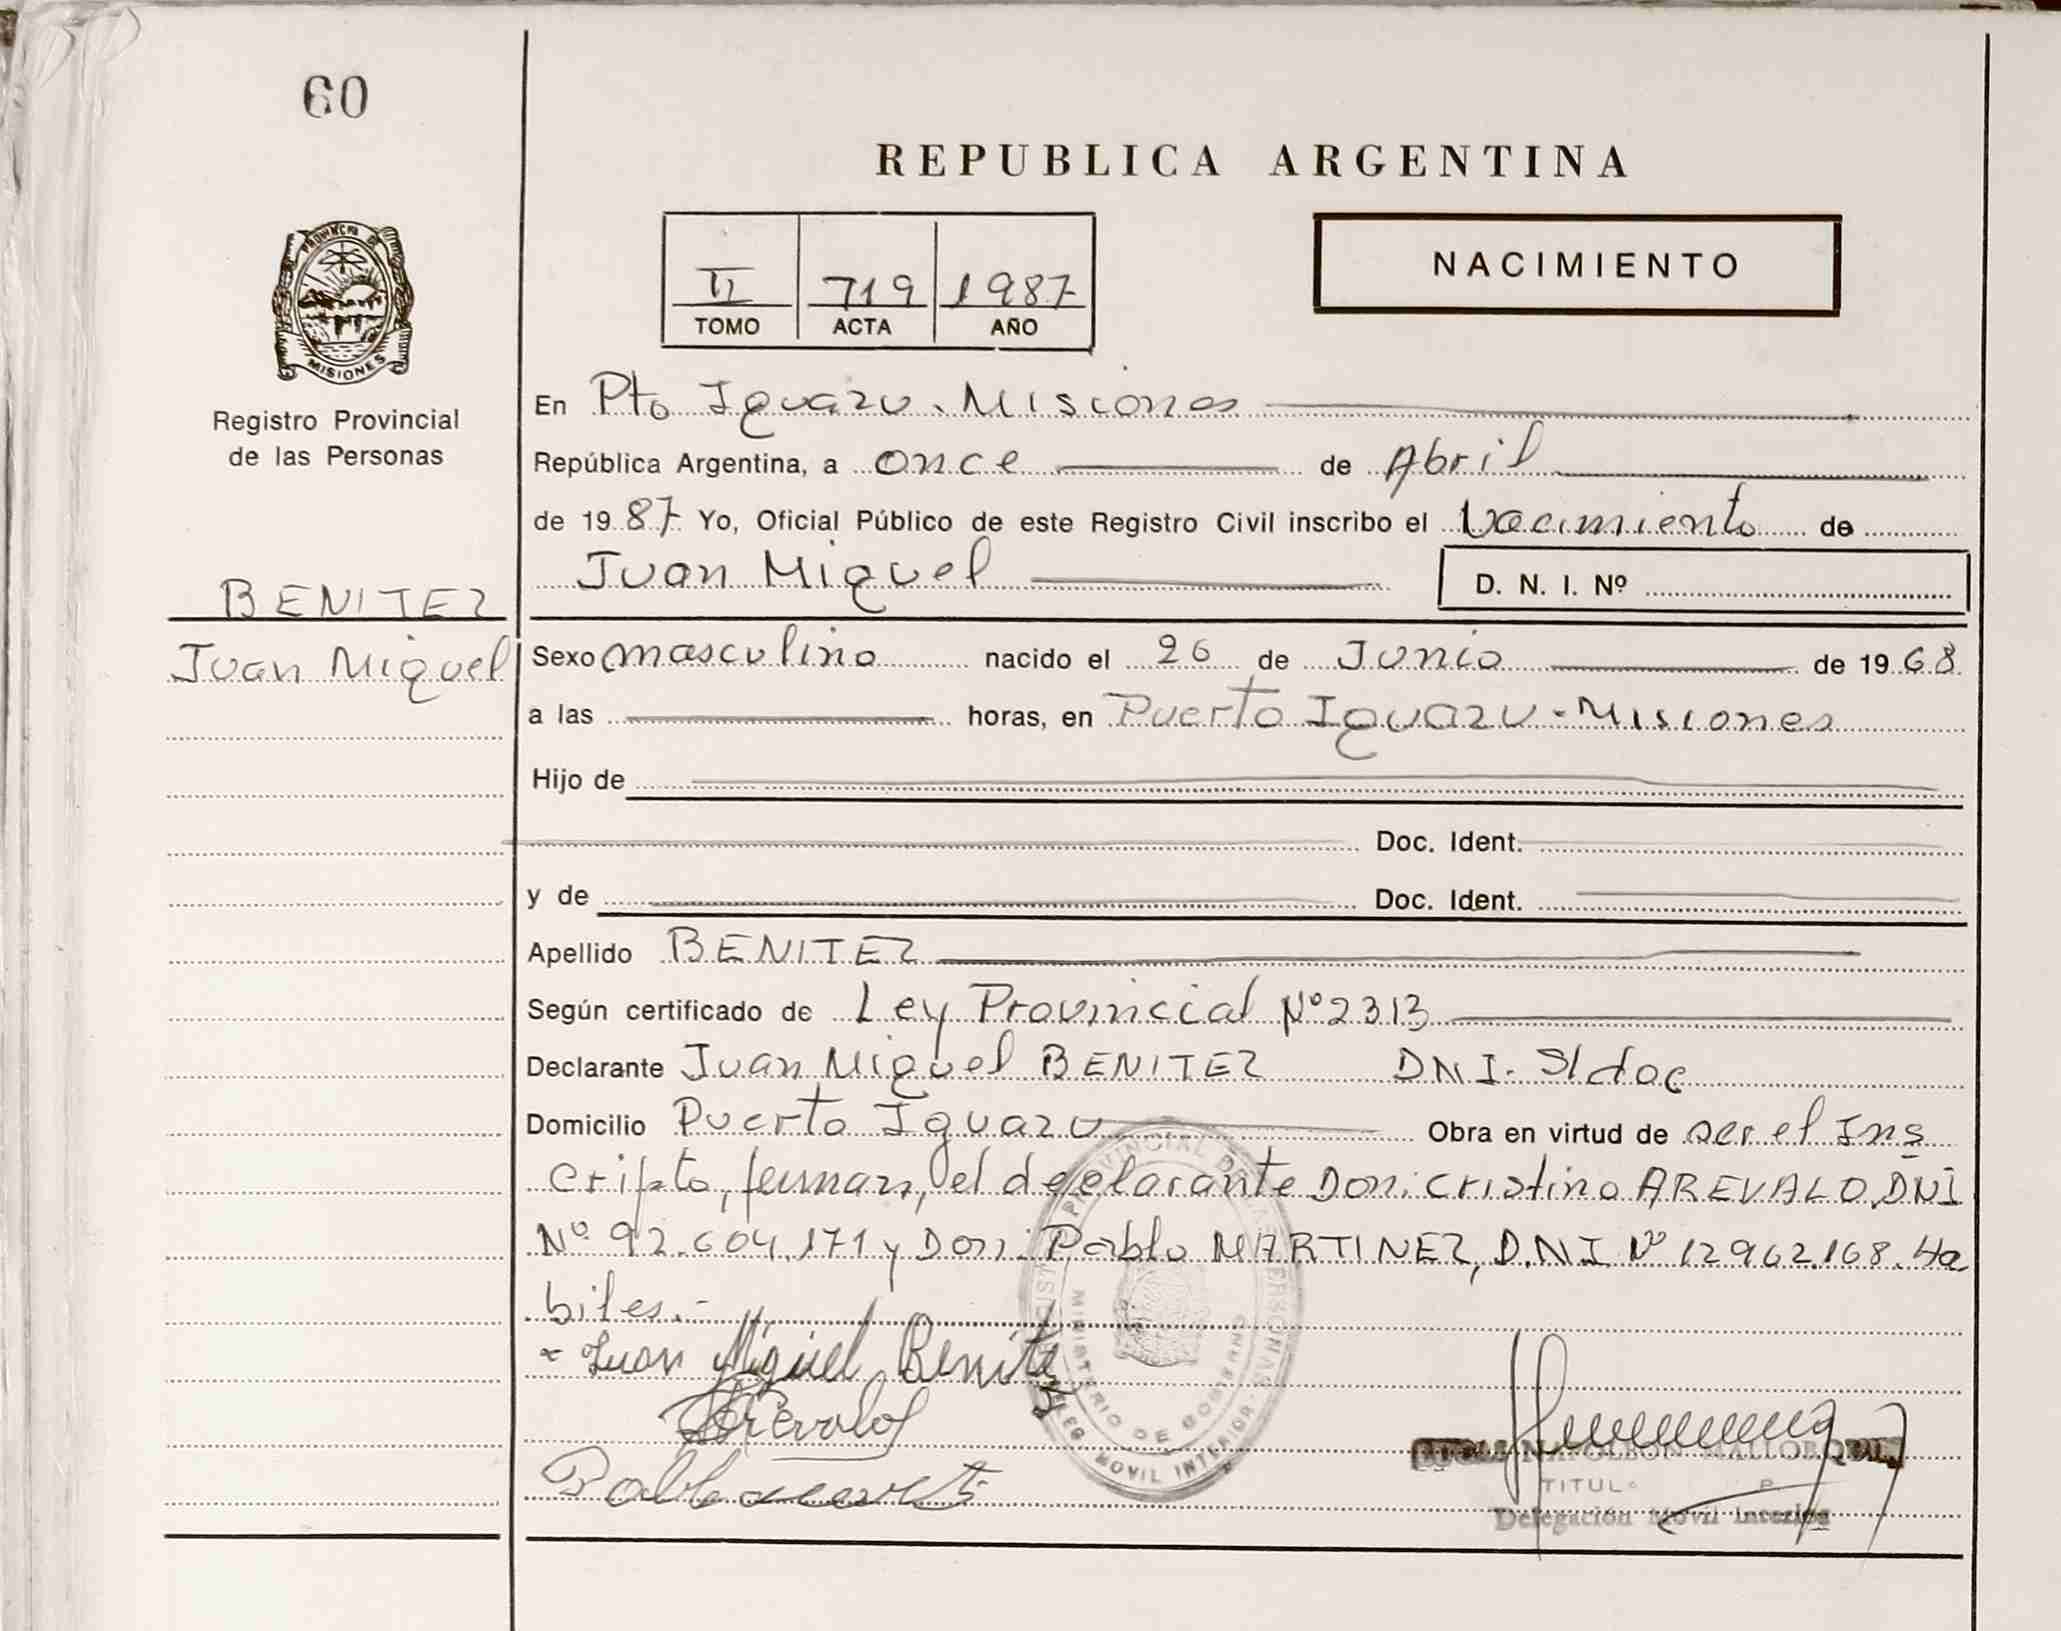 60
REPUBLICA ARGENTINA
PROVINCIA DE
MISIONES
Registro Provincial
de las Personas
II 719 1987
TOMO ACTA AÑO
NACIMIENTO
En Pto Iguazu. Misiones
República Argentina, a once de Abril
de 1987 Yo, Oficial Público de este Registro Civil inscribo el Nacimiento de
Juan Miguel D. N. I. Nº
BENITEZ
Juan Miguel
Sexo masculino nacido el 26 de Junio de 1968
a las horas, en Puerto Iguazu - Misiones
Hijo de
Doc. Ident.
y de Doc. Ident.
Apellido BENITEZ
Según certificado de Ley Provincial Nº 2313
Declarante Juan Miguel BENITEZ DNI. S/doc
Domicilio Puerto Iguazu Obra en virtud de ser el Ins
cripto, firman, el declarante Don: Cristino AREVALO, DNI
Nº 92.604.171 y Don: Pablo MARTINEZ, D.N.I Nº 12962.168. Ha
biles.-
Juan Miguel Benitez
Arevalo
Pablo
REGISTRO PROVINCIAL DE LAS PERSONAS
MINISTERIO DE GOBIERNO
DELEG MOVIL INTERIOR
NAPOLEON MALLORQUIN
TITUL
Delegación Móvil Interior